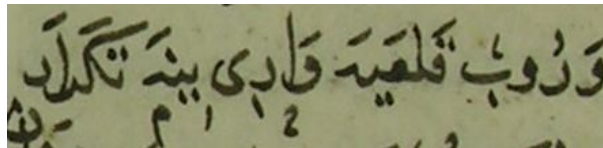 وَرُوب قلعَیه وَاردی ینَه تَکرار